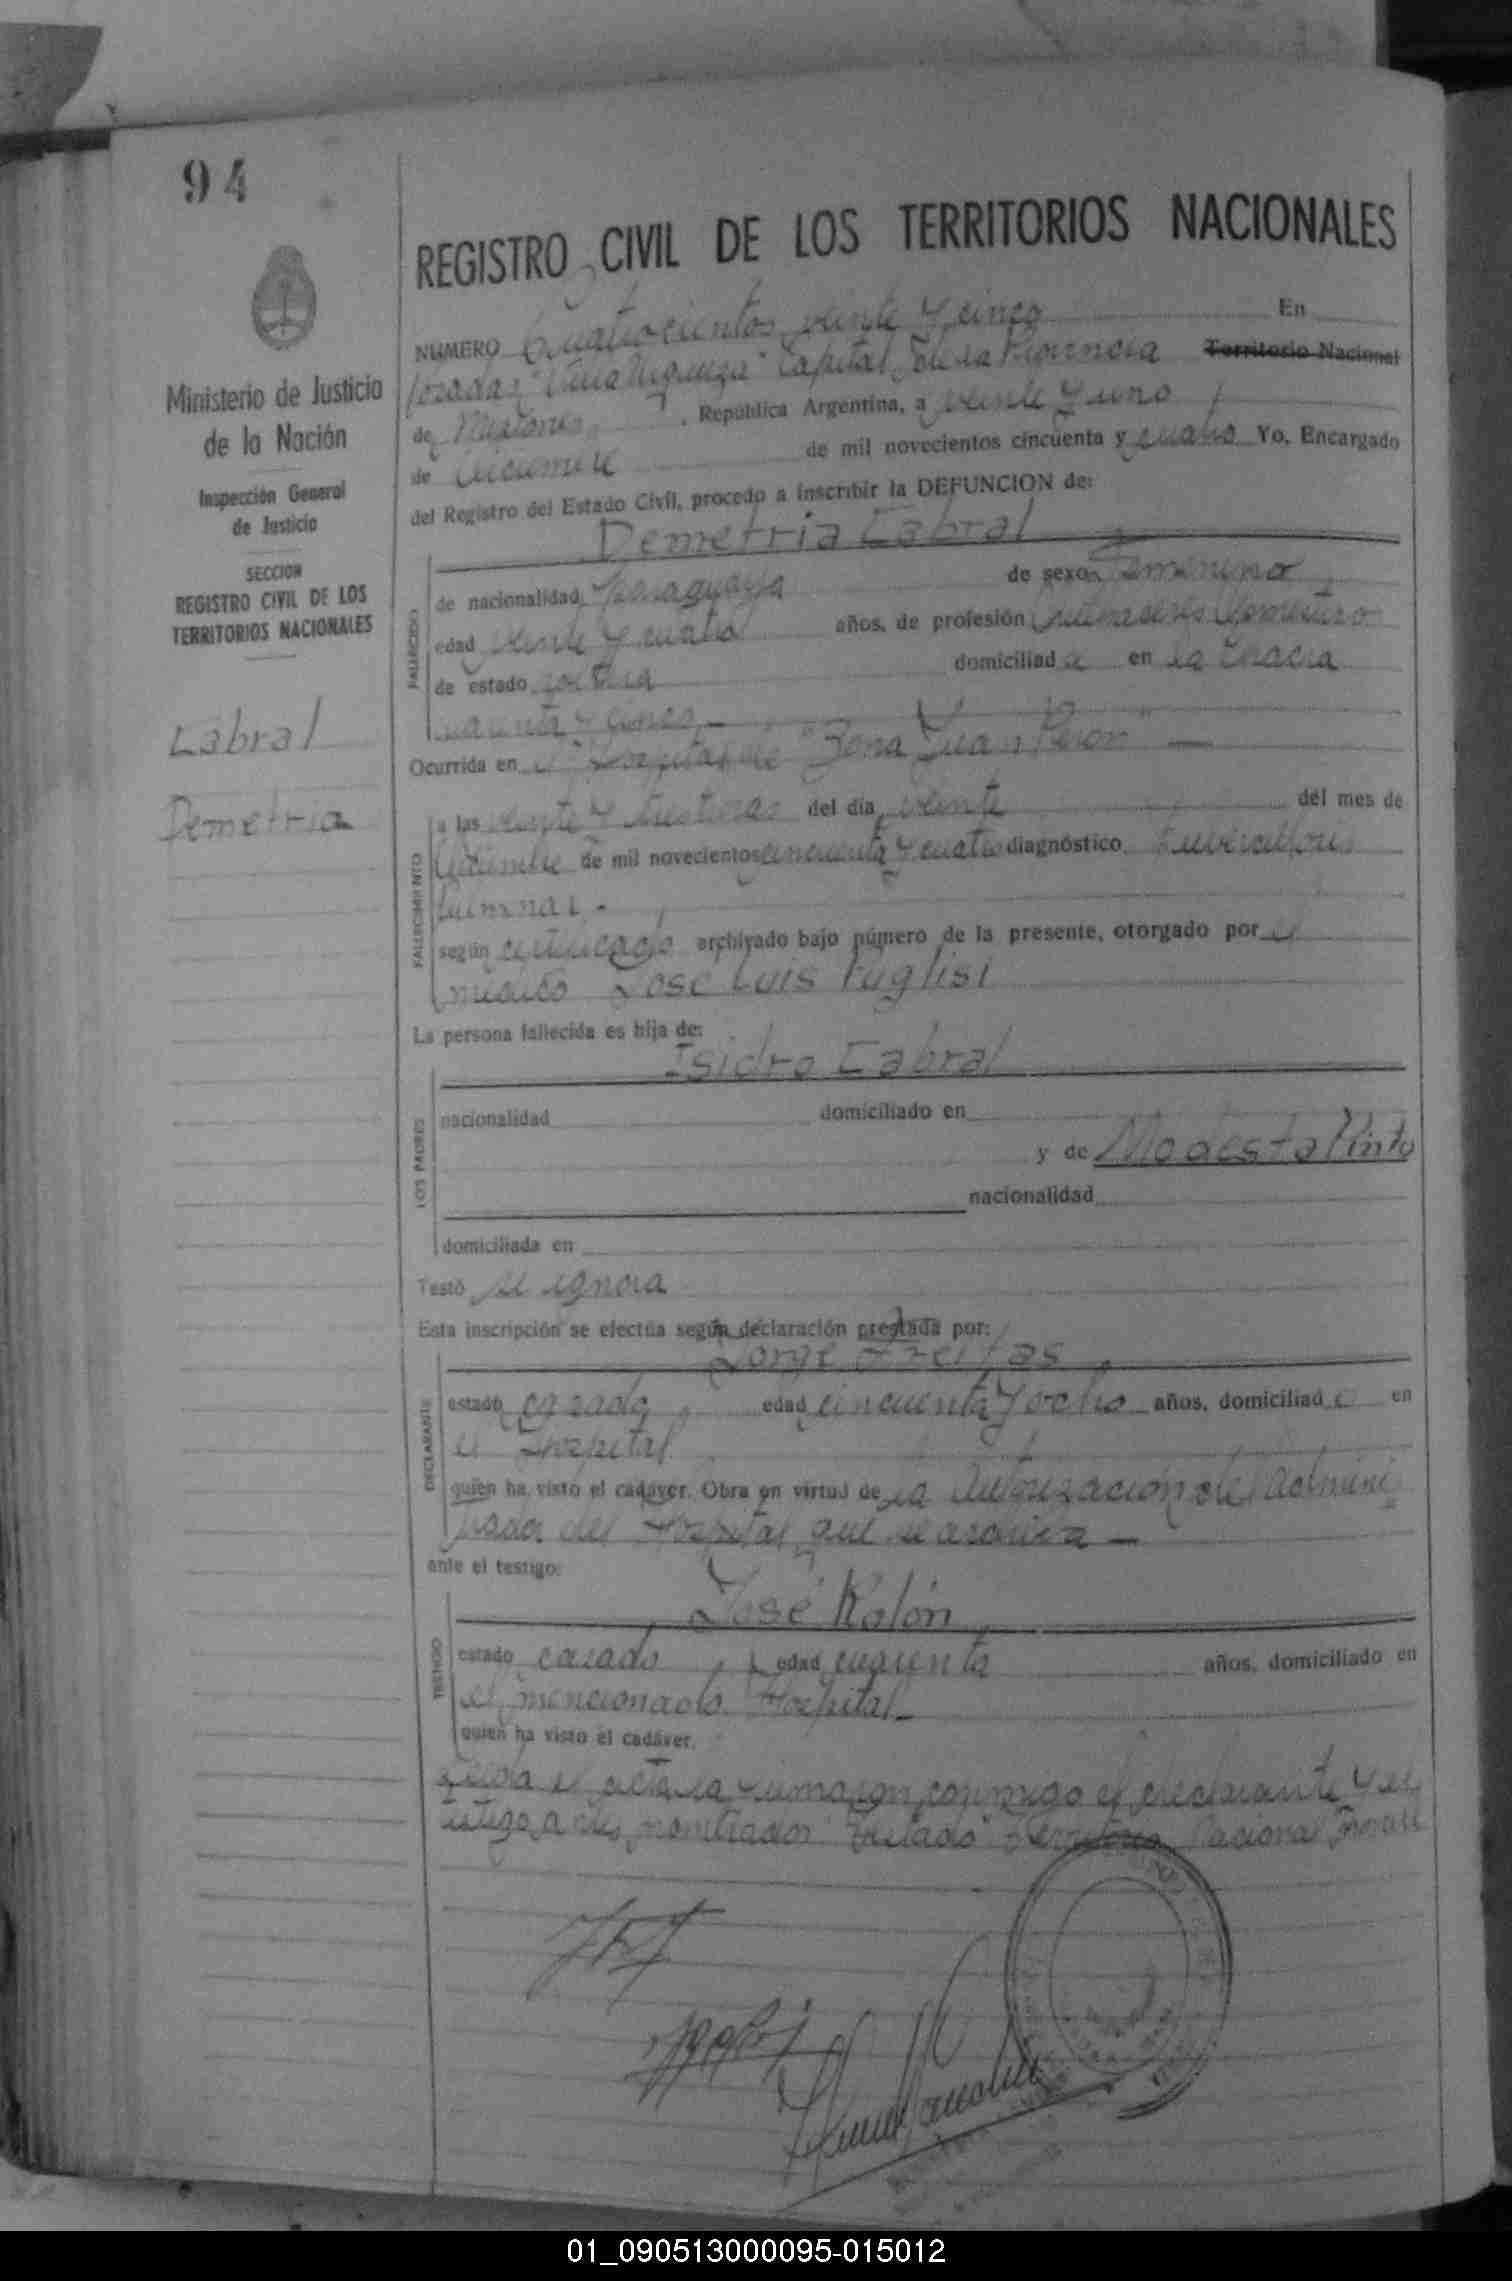 94
REGISTRO CIVIL DE LOS TERRITORIOS NACIONALES
Ministerio de Justicia
de la Nación
Inspección General
de Justicia
SECCION
REGISTRO CIVIL DE LOS
TERRITORIOS NACIONALES
Cabral
Demetria
NUMERO Cuatrocientos veinte y cinco En
Posadas "Villa Urquiza" Capital de la Provincia Territorio Nacional
de Misiones, República Argentina, a veinte y uno
de Diciembre de mil novecientos cincuenta y cuatro Yo, Encargado
del Registro del Estado Civil, procedo a inscribir la DEFUNCION de:
Demetria Cabral
FALLECIDO
de nacionalidad Paraguaya de sexo Femenino
edad veinte y cuatro años, de profesión quehaceres domestico
de estado soltera domiciliad a en la Chacra
cuarenta y cinco
Ocurrida en el Hospital de "Zona Juan Perón"
FALLECIMIENTO
a las veinte y tres horas del día veinte del mes de
Diciembre de mil novecientos cincuenta y cuatro diagnóstico Tuberculosis
Pulmonar.-
según certificado archivado bajo número de la presente, otorgado por el
médico José Luis Puglisi
La persona fallecida es hija de:
Isidro Cabral
LOS PADRES
nacionalidad domiciliado en
y de Modesta Pinto
nacionalidad
domiciliada en
Testó se ignora
Esta inscripción se efectúa según declaración prestada por:
Jorge Freitas
DECLARANTE
estado casado edad cincuenta y ocho años, domiciliad o en
el Hospital
quien ha visto el cadáver. Obra en virtud de la autorización del Admini
trador del Hospital que se archiva
ante el testigo:
José Rolón
TESTIGO
estado casado edad cuarenta años, domiciliado en
el mencionado Hospital
quien ha visto el cadáver.
Leida el acta la firmaron conmigo el declarante y el
testigo a nombrados "Testado" Territorio Nacional no vale
01_090513000095-015012